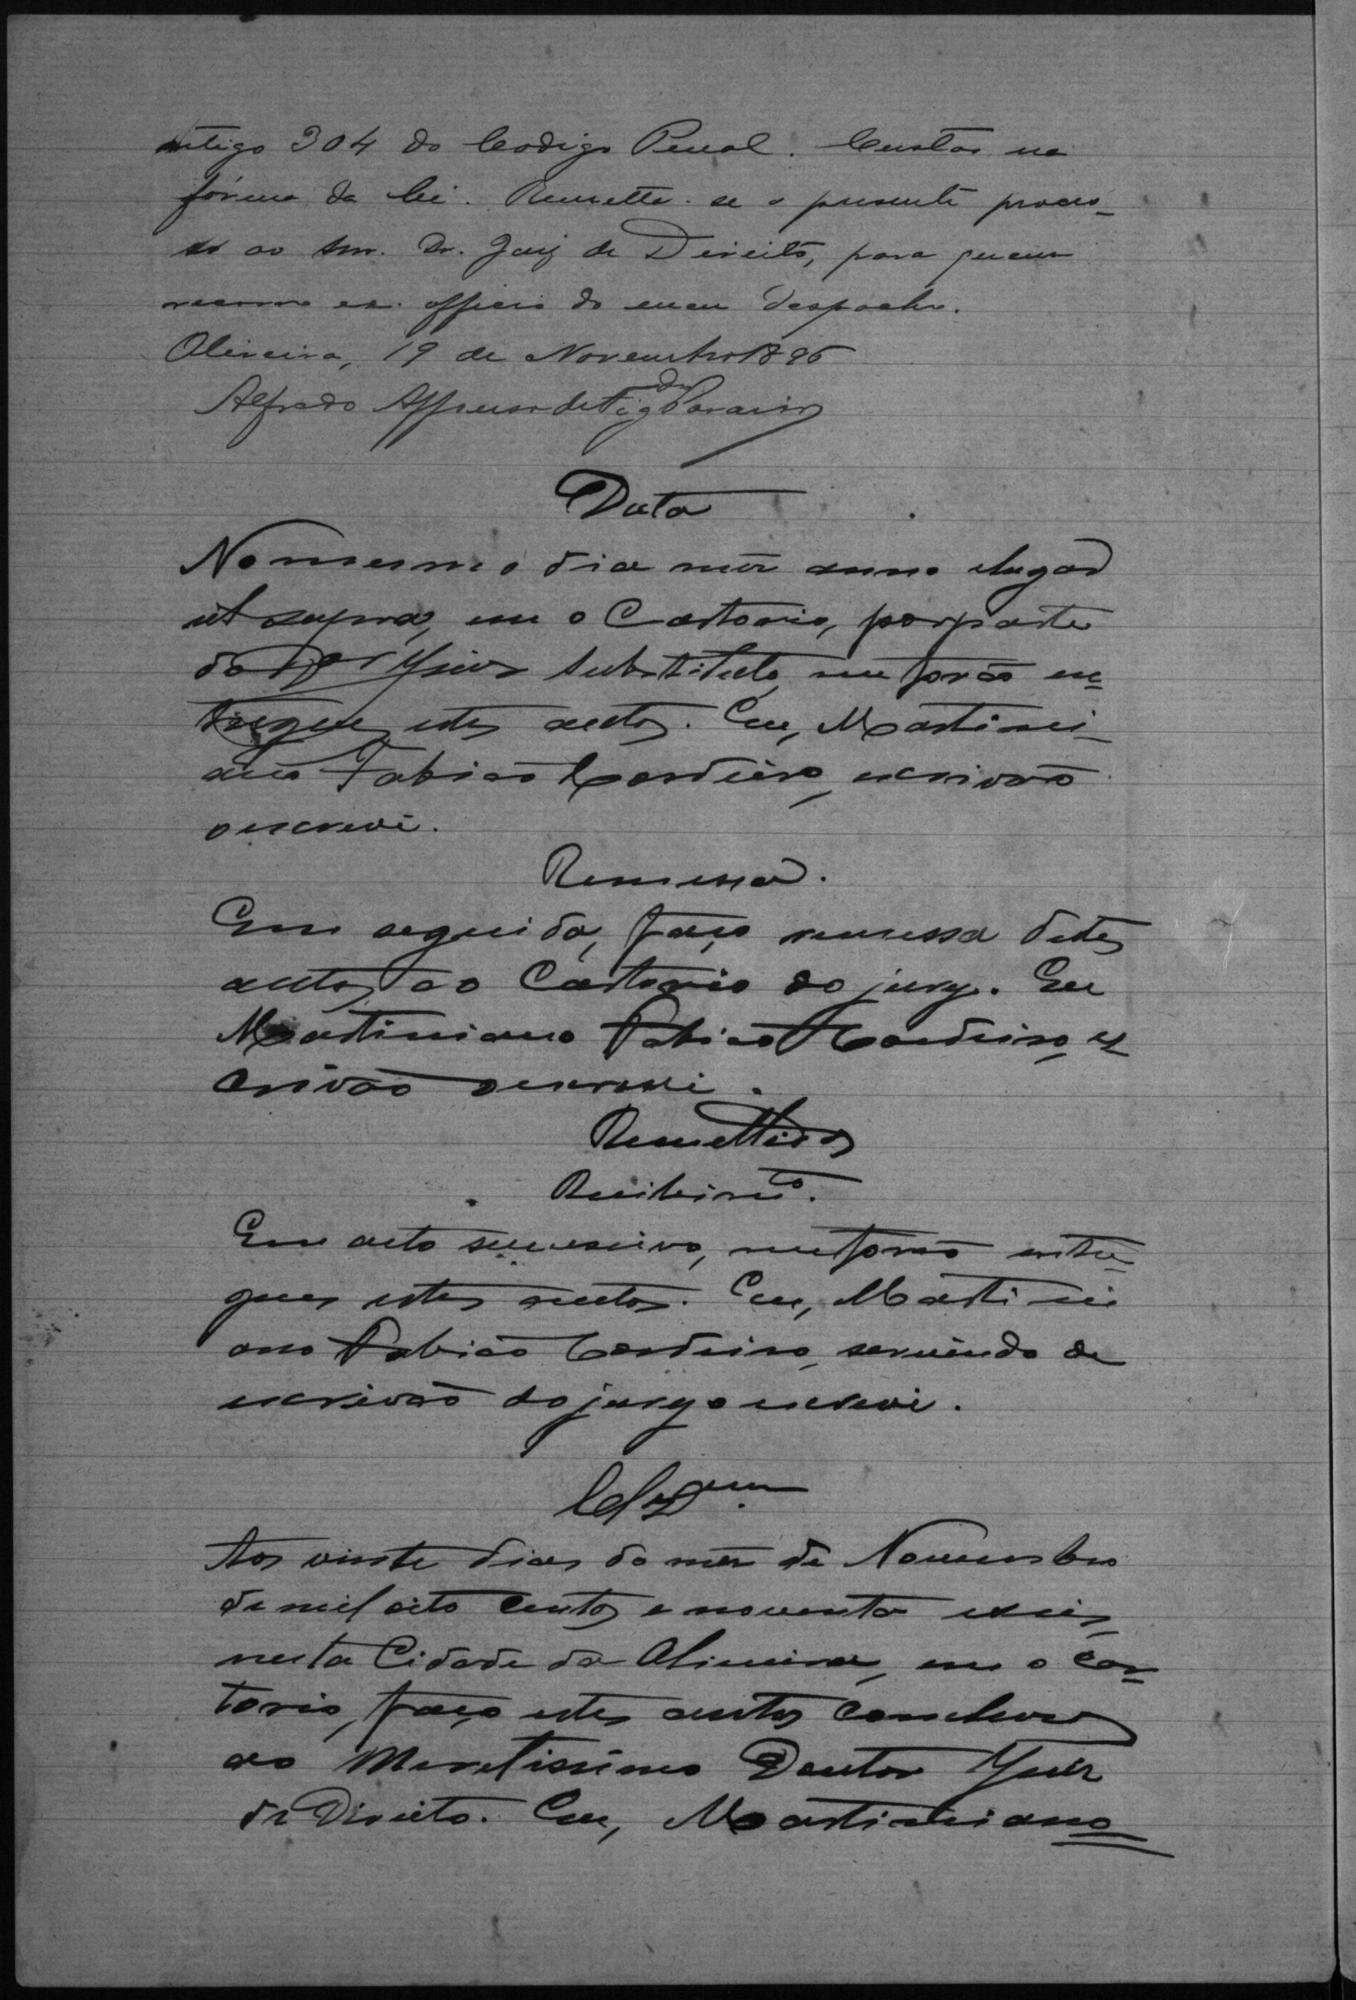 artigo 304 do Codigo Penal. Custas na
fórma da lei. Remetta-se o presente proces-
so ao Snr. Dr. Juiz de Direito, para quem
recorro ex-officio do meu despacho.
Oliveira, 19 de Novembro 1896
Alfredo Affonso de Fig.do Paraiso
Data
No mesmo dia mez anno e lugar
ut supra, em o Cartorio, por parte
do Dor Juiz Substituto, me forão en-
tregues estes autos. Eu, Martini-
ano Fabião Cordeiro, escrivão
o escrevi.
Remessa.
Em seguida, faço remessa destes
autos ao Cartorio do jury. Eu
Martiniano Fabião Cordeiro, es
crivão o escrevi.
Remettidos
Recebimto.
Em acto successivo, me forão entre-
gues estes autos. Eu, Martini
ano Fabião Cordeiro, servindo de
escrivão do jury o escrevi.
Clzam.
Aos vinte dias do mez de Novembro
de mil oito centos e noventa e seis,
nesta Cidade da Oliveira, em o Car-
torio, faço estes autos conclusos
ao Meretissimo Doutor Juiz
de Direito. Eu, Martiniano